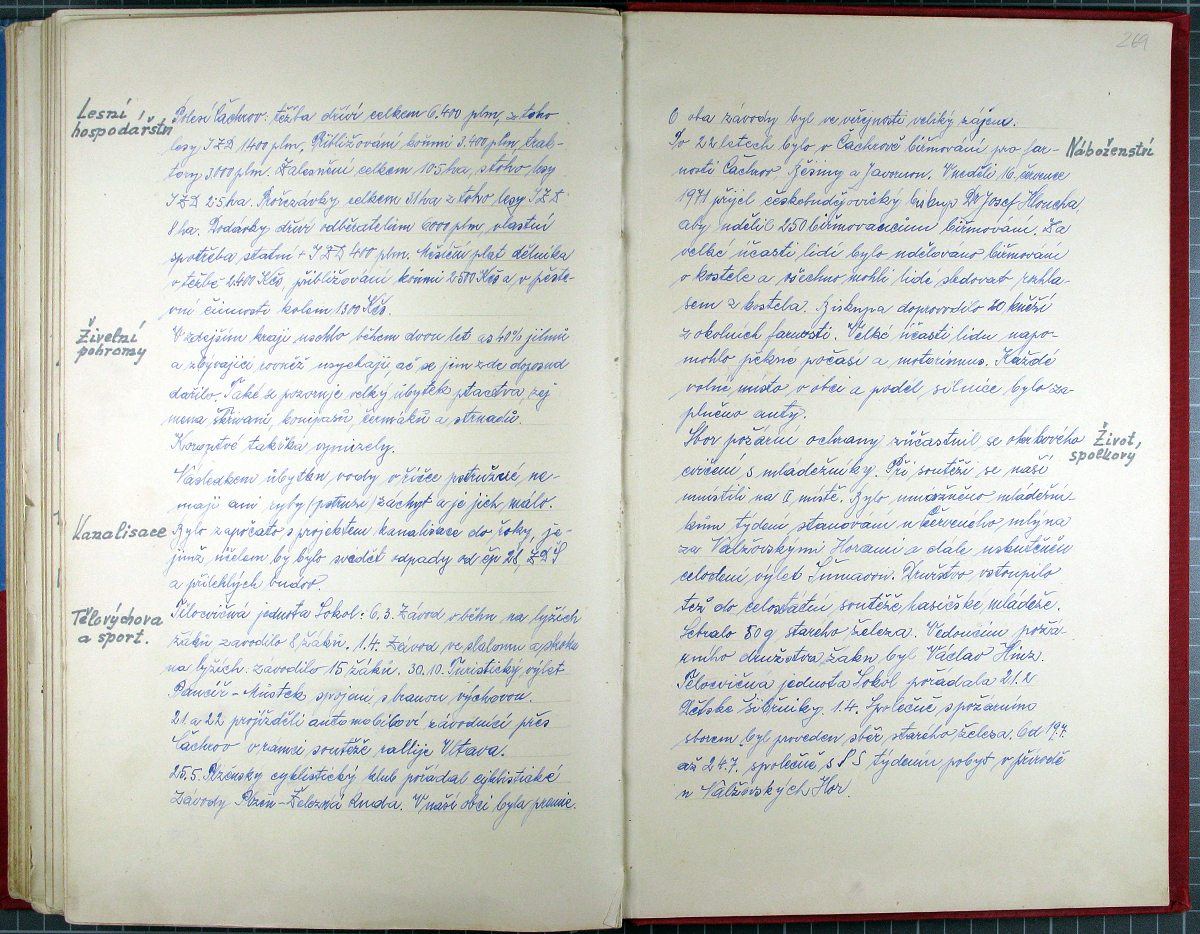 269
Lesní
hospodářství
Polesí Čachrov. těžba dříví celkem 6.400 plm, z toho
lesy JZD 1400 plm, Přibližování koňmi 3.400 plm, trak-
tory 3000 plm. Zalesnění celkem 10.5 ha, z toho, lesy
JZD 2.5 ha. Prořezávky celkem 31 ha z toho, lesy JZD
8 ha. Dodávky dříví odběratelům 6000 plm, vlastní
spotřeba státní + JZD 400 plm. Měsíční plat dělníka
v těžbě 2.400 Kčs, přibližování koňmi 2500 Kčs a v pěste-
bní činnosti kolem 1300 Kčs.
Živelní
pohromy
V zdejším kraji uschlo během dvou let as 40% jilmů
a zbývající rovněž usychají, ač se jim zde doposud
dařilo. Také se pozoruje velký úbytek ptactva, zej
mena skřivani, konipasů, čermáků a strnadů.
Koroptve takřka vymizely.
Následkem úbytku vody v říčce pstružné ne-
mají ani ryby (pstrusi) záchyt a je jich málo.
Kanalisace
Bylo započato s projektem kanalisace do řeky, je-
jímž účelem by bylo svedět odpady od čp 28, ZDŠ
a přilehlých budov.
Tělovýchova
a sport.
Tělocvičná jednota Sokol: 6.3. Závod v běhu na lyžích
žáků závodilo 8 žáků. 1.4. Závod ve slalomu a skoku
na lyžích. závodilo 15 žáků. 30.10. Turistický výlet
Pancíř - Můstek spojení s branou výchovou.
21. a 22 projížděli automobiloví závodníci přes
Čachrov v rámci soutěže rallije Vltava.
25.5. Plzeňsky cyklistický klub pořádal cyklistické
závody Plzeň - Železná Ruda. V naší obci byla premie.
O oba závody byl ve veřejnosti veliký zájem.
Náboženství
Po 22 letech bylo v Čachrově biřmování pro far-
nosti Čachrov Běšiny a Javornou. V neděli 16. července
1971 přijel českobudějovický biskup Dr Josef Hloucha,
aby udělil 250 biřmovacícům biřmování. Za
velké účasti lidí bylo udělováno biřmování
v kostele a všechno mohli lidé sledovat rozhla-
sem z kostela. Biskupa doprovodilo 20 kněží
z okolních farností. Velké účasti lidu napo-
mohlo pěkné počasí a motorismus. Každé
volné místo v obci a podél silnice bylo za-
plněno auty.
Život,
spolkový
Sbor požární ochrany zúčastnil se okrskového
cvičení s mládežníky. Při soutěži se naší
umístili na II místě. Bylo umožněno mládežní-
kům týden stanování u Červeného mlýna
za Valžovskými Horami a dále uskutečněn
celodení výlet Šumavou. Družstvo vstoupilo
též do celostátní soutěže hasičské mládeže.
Sebralo 50 q starého železa. Vedoucím požá-
rního družstva žáků byl Václav Hinz.
Tělocvičná jednota Sokol pořadala 21.2
Dětské šibřinky. 1.4. Společně s požárním
sborem byl proveden sběr starého železa. Od 19.7.
až 24.7. společně s PS týdenní pobyt v přírodě
u Valžovských Hor.